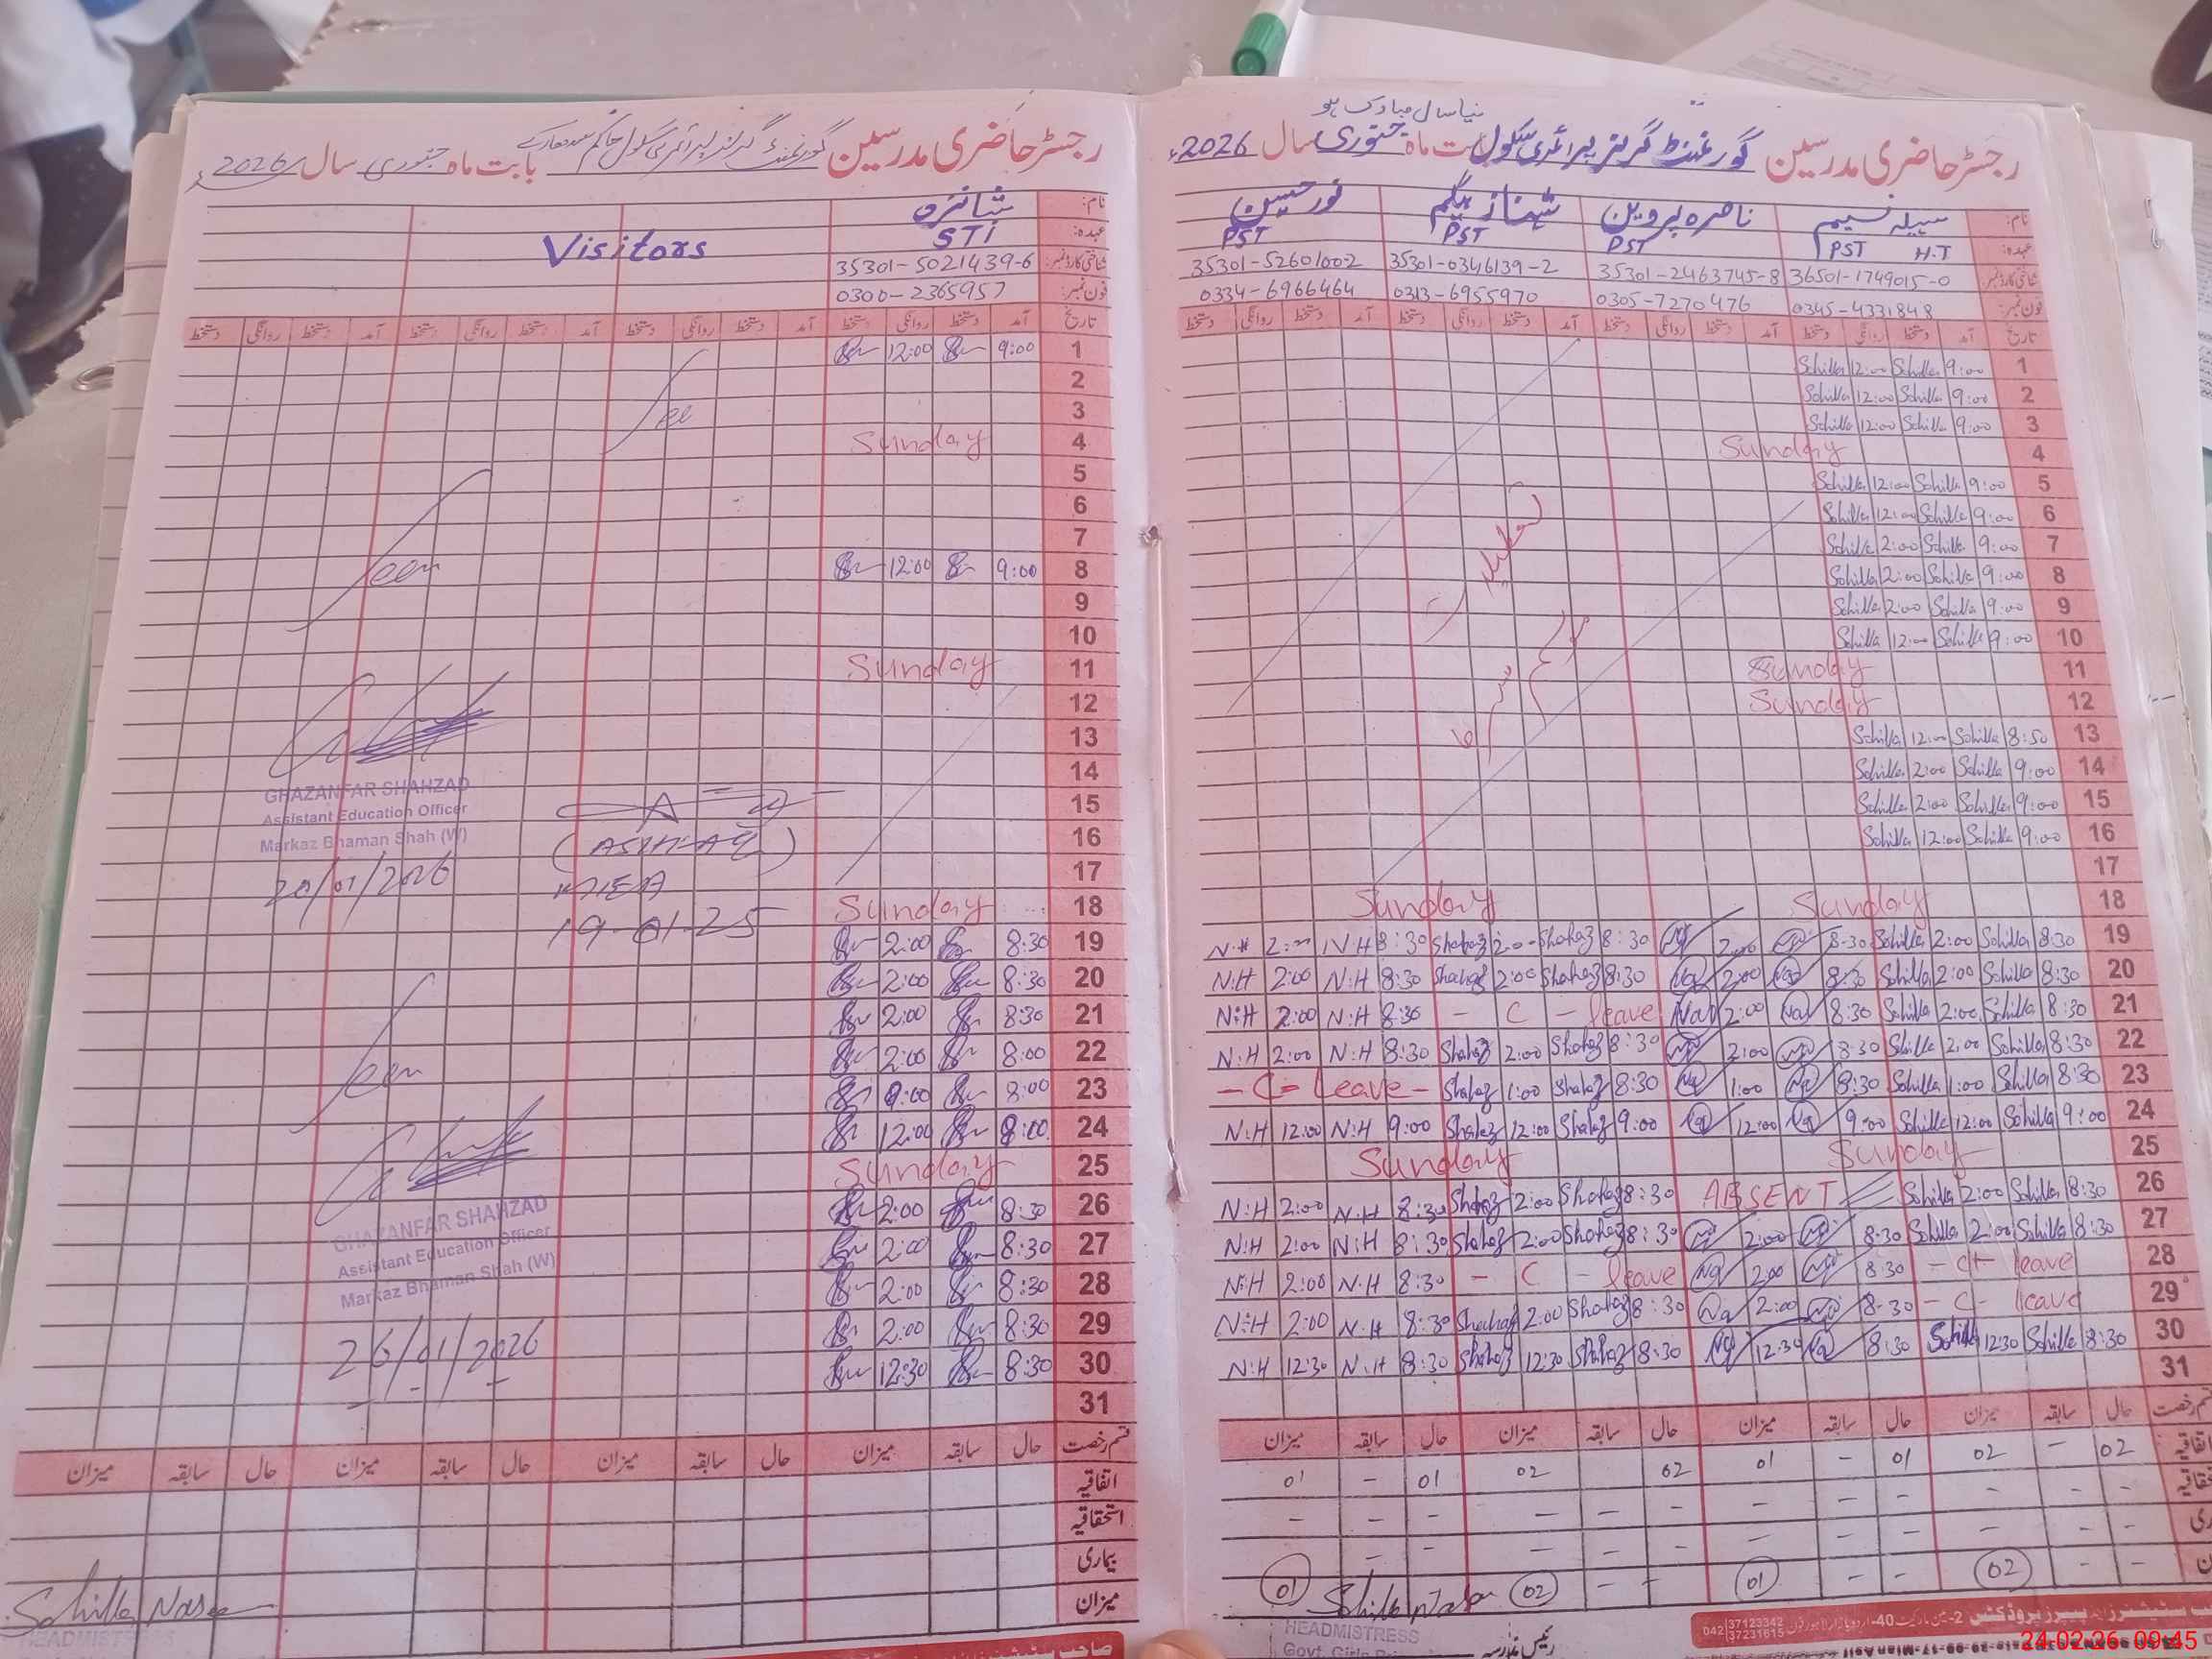 نیا سال مبارک ہو
رجسٹر حاضری مدرسین گورنمنٹ گرلز پرائمری سکول بابت ماہ جنوری سال 2026ء
نام: سہیلہ نسیم ناصرہ پروین شہناز بیگم نور حسین
عہدہ: PST H.T PST PST PST
شناختی کارڈ نمبر: 36501-1749015-0 35301-2463745-8 35301-0346139-2 35301-52601002
فون نمبر: 0345-4331848 0305-7270476 0313-6955970 0334-6966464
تاریخ آمد دستخط روانگی دستخط آمد دستخط روانگی دستخط آمد دستخط روانگی دستخط آمد دستخط روانگی دستخط
1 9:00 Sohilla 12:00 Sohilla
2 9:00 Sohilla 12:00 Sohilla
3 9:00 Sohilla 12:00 Sohilla
4 Sunday
5 9:00 Sohilla 12:00 Sohilla
6 9:00 Sohilla 12:00 Sohilla
7 9:00 Sohilla 2:00 Sohilla
8 9:00 Sohilla 2:00 Sohilla
9 9:00 Sohilla 2:00 Sohilla
10 9:00 Sohilla 12:00 Sohilla
11 Sunday
12 Sunday
13 8:50 Sohilla 12:00 Sohilla
14 9:00 Sohilla 2:00 Sohilla
15 9:00 Sohilla 2:00 Sohilla
16 9:00 Sohilla 12:00 Sohilla
17
تعطیلات موسم سرما
18 Sunday Sunday
19 8:30 Sohilla 2:00 Sohilla 8:30 2:00 8:30 Shahaz 2:00 Shahaz 8:30 N.H 2:00 N.H
20 8:30 Sohilla 2:00 Sohilla 8:30 2:00 8:30 Shahaz 2:00 Shahaz 8:30 N.H 2:00 N.H
21 8:30 Sohilla 2:00 Sohilla 8:30 2:00 - C - leave 8:30 N.H 2:00 N.H
22 8:30 Sohilla 2:00 Sohilla 8:30 2:00 8:30 Shahaz 2:00 Shahaz 8:30 N.H 2:00 N.H
23 8:30 Sohilla 1:00 Sohilla 8:30 1:00 8:30 Shahaz 1:00 Shahaz - C - Leave -
24 9:00 Sohilla 12:00 Sohilla 9:00 12:00 9:00 Shahaz 12:00 Shahaz 9:00 N.H 12:00 N.H
25 Sunday Sunday
26 8:30 Sohilla 2:00 Sohilla ABSENT 8:30 Shahaz 2:00 Shahaz 8:30 N.H 2:00 N.H
27 8:30 Sohilla 2:00 Sohilla 8:30 2:00 8:30 Shahaz 2:00 Shahaz 8:30 N.H 2:00 N.H
28 - C - leave 8:30 2:00 - C - leave 8:30 N.H 2:00 N.H
29 - C - leave 8:30 2:00 8:30 Shahaz 2:00 Shahaz 8:30 N.H 2:00 N.H
30 8:30 Sohilla 12:30 Sohilla 8:30 12:30 8:30 Shahaz 12:30 Shahaz 8:30 N.H 12:30 N.H
31
قسم رخصت حال سابقہ میزان حال سابقہ میزان حال سابقہ میزان حال سابقہ میزان
اتفاقیہ 02 - 02 01 - 01 02 02 01 - 01
02 01 02 01
Sohilla Nasem
HEADMISTRESS
Govt. Girls
رئیس مدرسہ
042 37123342
37231615
24.02.26 09:45
رجسٹر حاضری مدرسین گورنمنٹ گرلز پرائمری سکول حاکم سدھارکے بابت ماہ جنوری سال 2026ء
نام: شائزہ
عہدہ: STI
Visitors
شناختی کارڈ نمبر: 35301-5021439-6
فون نمبر: 0300-2365957
تاریخ آمد دستخط روانگی دستخط آمد دستخط روانگی دستخط آمد دستخط روانگی دستخط آمد دستخط روانگی دستخط
1 9:00 12:00
2
3
4 Sunday
5
6
7
8 9:00 12:00
Seen
9
10
11 Sunday
12
13
14
15
16
17
GHAZANFAR SHAHZAD
Assistant Education Officer
Markaz Bhaman Shah (W)
20/01/2026
(ASHFAQ)
MEA
19-01-25
18 Sunday
19 8:30 2:00
20 8:30 2:00
21 8:30 2:00
22 8:00 2:00
Seen
23 8:00 9:00
24 8:00 12:00
25 Sunday
26 8:30 2:00
27 8:30 2:00
28 8:30 2:00
29 8:30 2:00
30 8:30 12:30
31
GHAZANFAR SHAHZAD
Assistant Education Officer
Markaz Bhaman Shah (W)
26/01/2026
قسم رخصت حال سابقہ میزان حال سابقہ میزان حال سابقہ میزان حال سابقہ میزان
اتفاقیہ
استحقاقیہ
بیماری
میزان
Sohilla Nasem
HEADMISTRESS